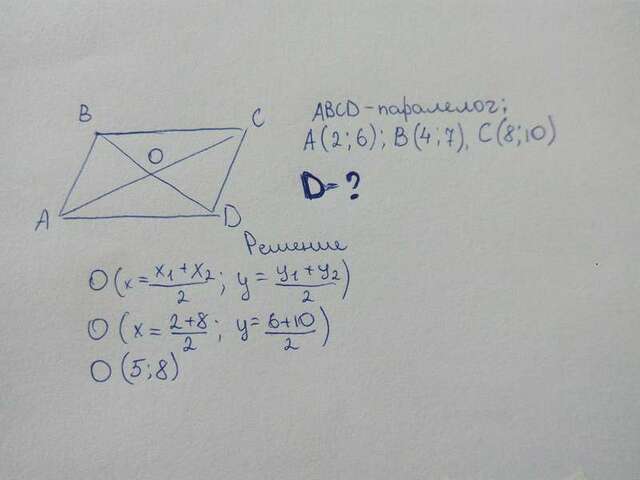 B
C
O
A
D
ABCD - паралелог;
A(2;6); B(4;7), C(8;10)
D=?
Решение
O (x = \frac{x_1 + x_2}{2}; y = \frac{y_1 + y_2}{2})
O (x = \frac{2+8}{2}; y = \frac{6+10}{2})
O (5;8)